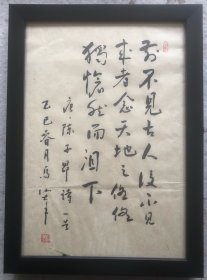 前不見古人後不見
來者念天地之悠悠
獨愴然而涕下
唐陳子昂詩一首
乙巳春月